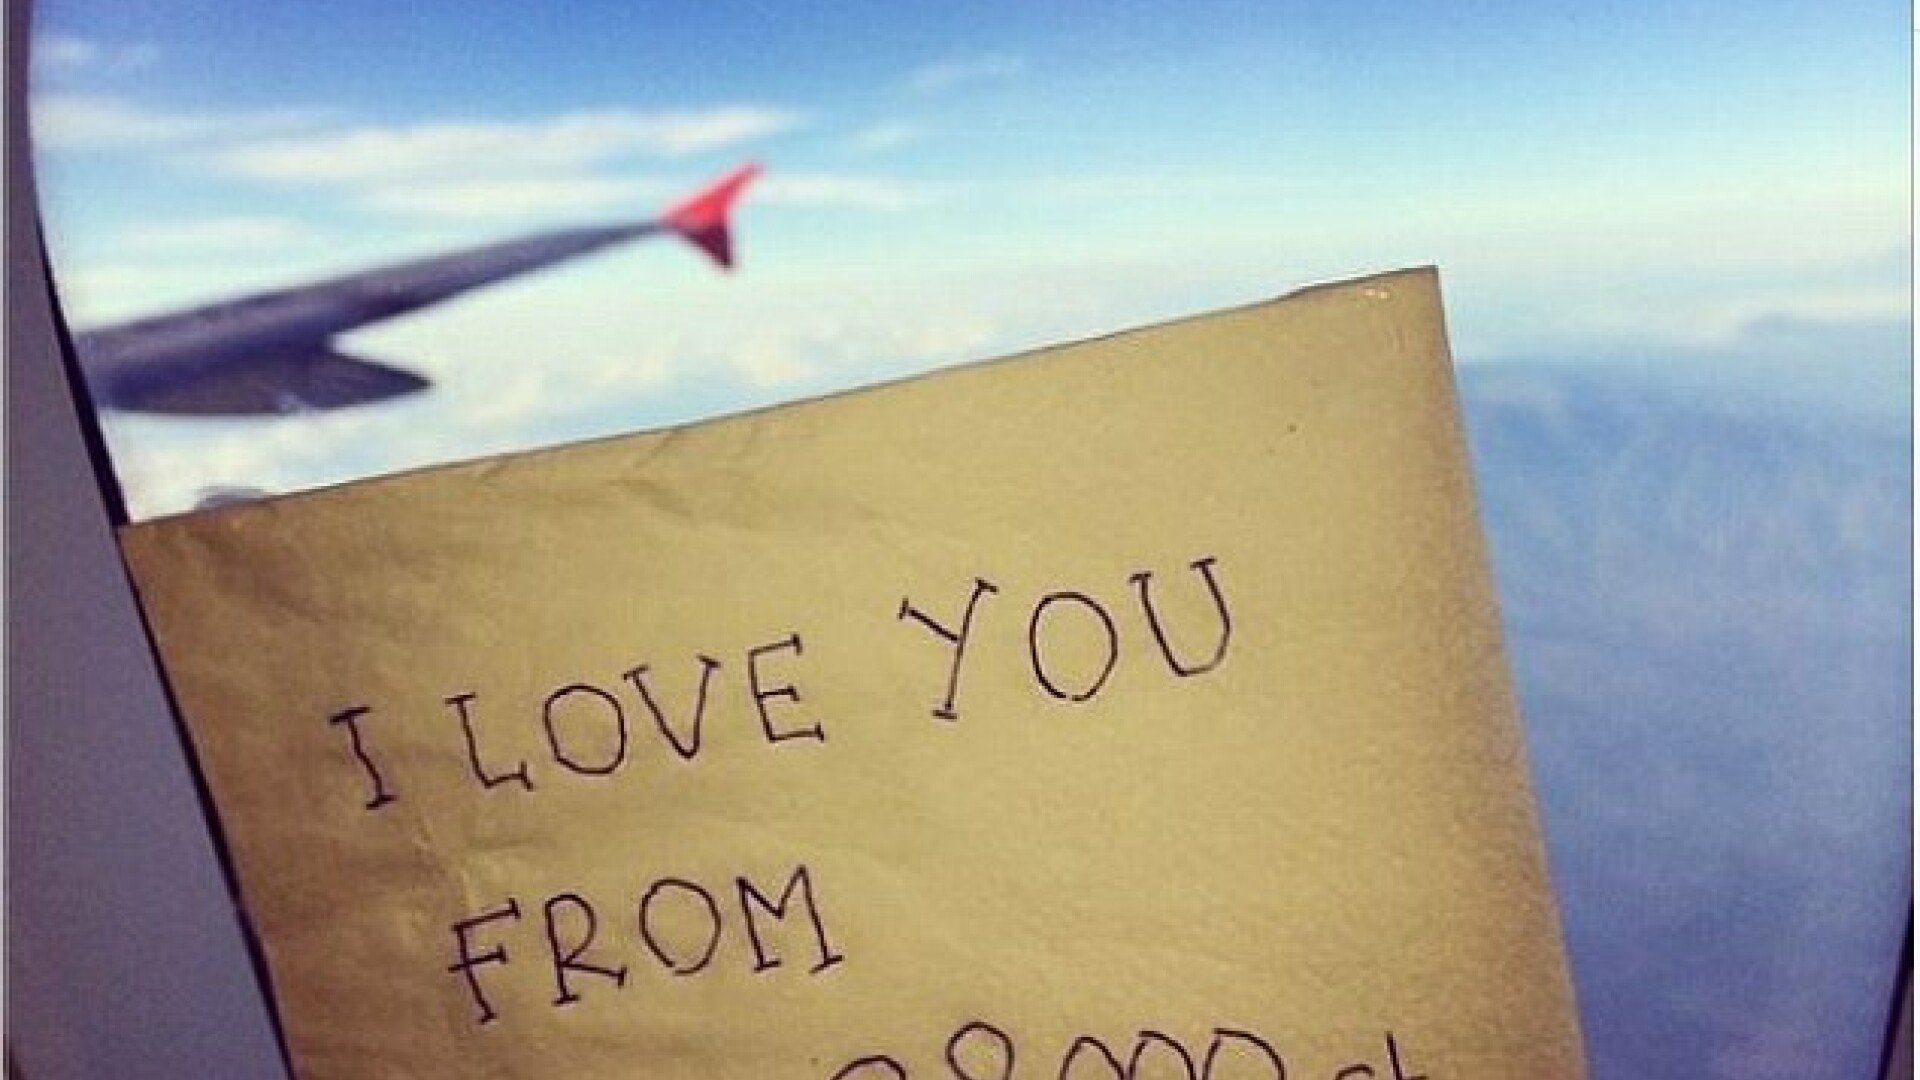 I LOVE YOU
FROM